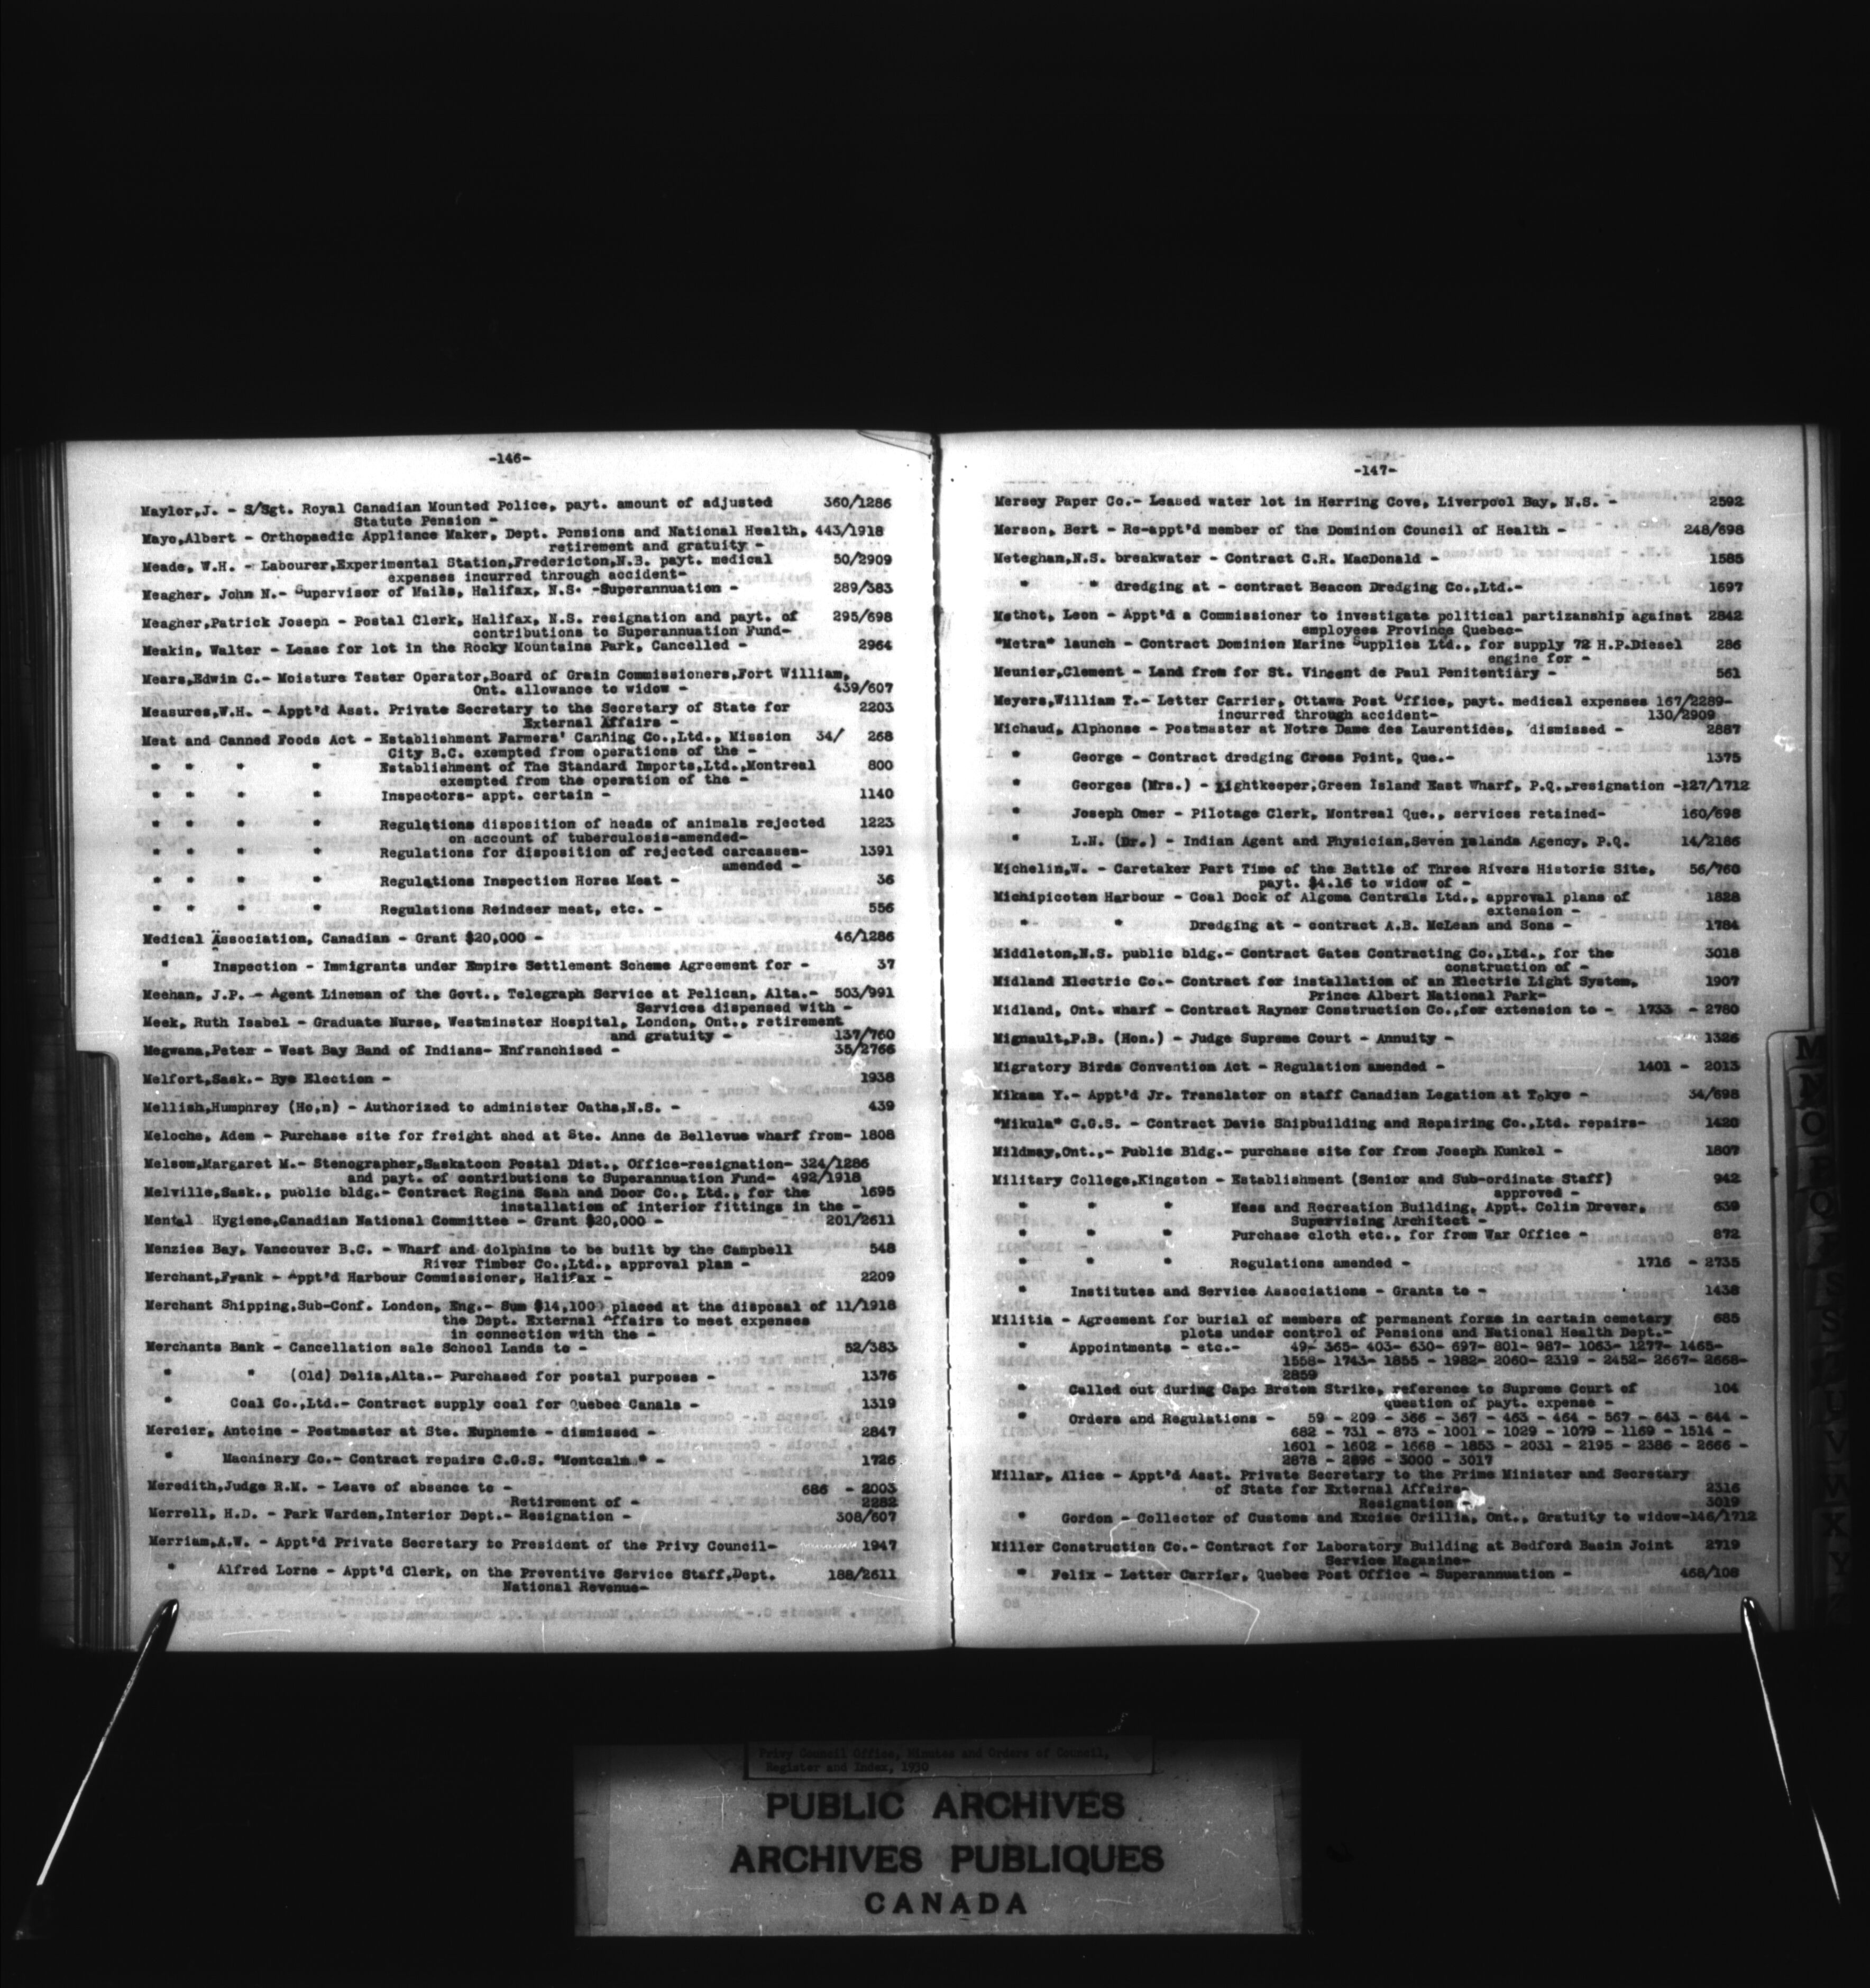 -146-
Maylor,J. - S/Sgt. Royal Canadian Mounted Police, payt. amount of adjusted 360/1286
Statute Pension -
Mayo,Albert - Orthopaedic Appliance Maker, Dept. Pensions and National Health, 443/1918
retirement and gratuity -
Meade, W.H. - Labourer,Experimental Station,Fredericton,N.B. payt. medical 50/2909
expenses incurred through accident-
Meagher, John N.- Supervisor of Mails, Halifax, N.S. -Superannuation - 289/383
Meagher,Patrick Joseph - Postal Clerk, Halifax, N.S. resignation and payt. of 295/698
contributions to Superannuation Fund-
Meakin, Walter - Lease for lot in the Rocky Mountains Park, Cancelled - 2964
Mears,Edwin C.- Moisture Tester Operator,Board of Grain Commissioners,Fort William,
Ont. allowance to widow - 439/607
Measures,W.H. - Appt'd Asst. Private Secretary to the Secretary of State for 2203
External Affairs -
Meat and Canned Foods Act - Establishment Farmers' Canning Co.,Ltd., Mission 34/ 268
City B.C. exempted from operations of the -
" " " " Establishment of The Standard Imports,Ltd.,Montreal 800
exempted from the operation of the -
" " " " Inspectors- appt. certain - 1140
" " " " Regulations disposition of heads of animals rejected 1223
on account of tuberculosis-amended-
" " " " Regulations for disposition of rejected carcasses- 1391
amended -
" " " " Regulations Inspection Horse Meat - 36
" " " " Regulations Reindeer meat, etc. - 556
Medical Association, Canadian - Grant $20,000 - 46/1286
" Inspection - Immigrants under Empire Settlement Scheme Agreement for - 37
Meehan, J.P. - Agent Lineman of the Govt., Telegraph Service at Pelican, Alta.- 503/991
Services dispensed with -
Meek, Ruth Isabel - Graduate Nurse, Westminster Hospital, London, Ont., retirement
and gratuity - 137/760
Megwans,Peter - West Bay Band of Indians- Enfranchised - 35/2766
Melfort,Sask.- Bye Election - 1938
Mellish,Humphrey (Ho,n) - Authorized to administer Oaths,N.S. - 439
Meloche, Adem - Purchase site for freight shed at Ste. Anne de Bellevue wharf from- 1808
Melsom,Margaret M.- Stenographer,Saskatoon Postal Dist., Office-resignation- 324/1286
and payt. of contributions to Superannuation Fund- 492/1918
Melville,Sask., public bldg.- Contract Regina Sash and Door Co., Ltd., for the 1695
installation of interior fittings in the -
Mental Hygiene,Canadian National Committee - Grant $20,000 - 201/2611
Menzies Bay, Vancouver B.C. - Wharf and dolphins to be built by the Campbell 548
River Timber Co.,Ltd., approval plan -
Merchant,Frank - Appt'd Harbour Commissioner, Halifax - 2209
Merchant Shipping,Sub-Conf. London, Eng.- Sum $14,100 placed at the disposal of 11/1918
the Dept. External Affairs to meet expenses
in connection with the -
Merchants Bank - Cancellation sale School Lands to - 52/383
" " (Old) Delia,Alta.- Purchased for postal purposes - 1376
" Coal Co.,Ltd.- Contract supply coal for Quebec Canals - 1319
Mercier, Antoine - Postmaster at Ste. Euphemie - dismissed - 2847
" Machinery Co.- Contract repairs C.G.S. "Montcalm " - 1726
Meredith,Judge R.M. - Leave of absence to - 686 - 2003
Retirement of - 2282
Merrell, H.D. - Park Warden,Interior Dept.- Resignation - 308/607
Merriam,A.W. - Appt'd Private Secretary to President of the Privy Council- 1947
" Alfred Lorne - Appt'd Clerk, on the Preventive Service Staff,Dept. 188/2611
National Revenue-
-147-
Mersey Paper Co.- Leased water lot in Herring Cove, Liverpool Bay, N.S. - 2592
Merson, Bert - Re-appt'd member of the Dominion Council of Health - 248/698
Meteghan,N.S. breakwater - Contract C.R. MacDonald - 1585
" " dredging at - contract Beacon Dredging Co.,Ltd.- 1697
Methot, Leon - Appt'd a Commissioner to investigate political partizanship against 2842
employees Province Quebec-
"Metra" launch - Contract Dominion Marine Supplies Ltd., for supply 72 H.P.Diesel 286
engine for -
Meunier,Clement - Land from for St. Vincent de Paul Penitentiary - 561
Meyers,William T.- Letter Carrier, Ottawa Post Office, payt. medical expenses 167/2289-
incurred through accident- 130/2909
Michaud, Alphonse - Postmaster at Notre Dame des Laurentides, dismissed - 2887
" George - Contract dredging Cross Point, Que.- 1375
" Georges (Mrs.) - Lightkeeper,Green Island East Wharf, P.Q.,resignation -127/1712
" Joseph Omer - Pilotage Clerk, Montreal Que., services retained- 160/698
" L.N. (Dr.) - Indian Agent and Physician,Seven Islands Agency, P.Q. 14/2186
Michelin,W. - Caretaker Part Time of the Battle of Three Rivers Historic Site, 56/760
payt. $4.16 to widow of -
Michipicoten Harbour - Coal Dock of Algoma Centrals Ltd., approval plans of 1828
extension -
" " Dredging at - contract A.B. McLean and Sons - 1784
Middleton,N.S. public bldg.- Contract Gates Contracting Co.,Ltd., for the 3018
construction of -
Midland Electric Co.- Contract for installation of an Electric Light System, 1907
Prince Albert National Park-
Midland, Ont. wharf - Contract Rayner Construction Co.,for extension to - 1733 - 2780
Mignault,P.B. (Hon.) - Judge Supreme Court - Annuity - 1326
Migratory Birds Convention Act - Regulation amended - 1401 - 2013
Mikasa Y.- Appt'd Jr. Translator on staff Canadian Legation at Tokyo - 34/698
"Mikula" C.G.S. - Contract Davie Shipbuilding and Repairing Co.,Ltd. repairs- 1420
Mildmay,Ont.,- Public Bldg.- purchase site for from Joseph Kunkel - 1807
Military College,Kingston - Establishment (Senior and Sub-ordinate Staff) 942
approved -
" " " Mess and Recreation Building, Appt. Colin Drever, 639
Supervising Architect -
" " " Purchase cloth etc., for from War Office - 872
" " " Regulations amended - 1716 - 2735
" Institutes and Service Associations - Grants to - 1438
Militia - Agreement for burial of members of permanent forms in certain cemetary 685
plots under control of Pensions and National Health Dept.-
" Appointments - etc.- 49- 365- 403- 630- 697- 801- 987- 1063- 1277- 1465-
1558- 1743- 1855 - 1982- 2060- 2319 - 2452- 2667- 2668-
2859
" Called out during Cape Breton Strike, reference to Supreme Court of 104
question of payt. expense -
" Orders and Regulations - 59 - 209 - 366 - 367 - 463 - 464 - 567 - 643 - 644 -
682 - 731 - 873 - 1001 - 1029 - 1079 - 1169 - 1514 -
1601 - 1602 - 1668 - 1853 - 2031 - 2195 - 2386 - 2666 -
2878 - 2896 - 3000 - 3017
Millar, Alice - Appt'd Asst. Private Secretary to the Prime Minister and Secretary
of State for External Affairs- 2316
Resignation - 3019
" Gordon - Collector of Customs and Excise Orillia, Ont., Gratuity to widow-146/1712
Miller Construction Co.- Contract for Laboratory Building at Bedford Basin Joint 2719
Service Magazine-
" Felix - Letter Carrier, Quebec Post Office - Superannuation - 468/108
M
N
O
Privy Council Office, Minutes and Orders of Council,
Register and Index, 1930
PUBLIC ARCHIVES
ARCHIVES PUBLIQUES
CANADA